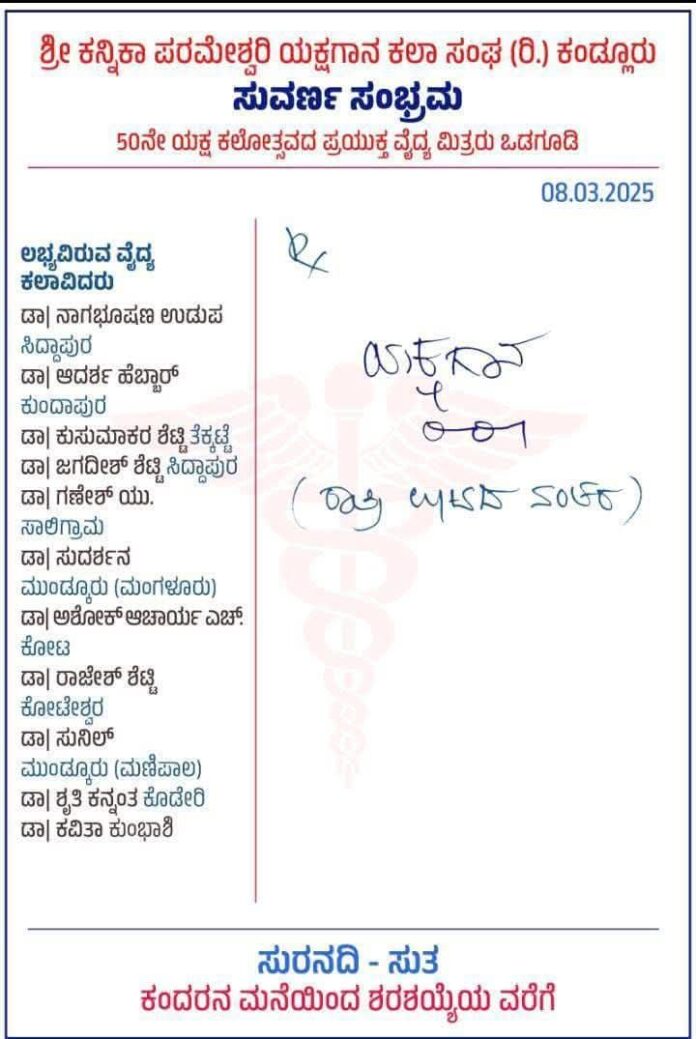 ಶ್ರೀ ಕನ್ನಿಕಾ ಪರಮೇಶ್ವರಿ ಯಕ್ಷಗಾನ ಕಲಾ ಸಂಘ (ರಿ.) ಕಂಡ್ಲೂರು
ಸುವರ್ಣ ಸಂಭ್ರಮ
50ನೇ ಯಕ್ಷ ಕಲೋತ್ಸವದ ಪ್ರಯುಕ್ತ ವೈದ್ಯ ಮಿತ್ರರು ಒಡಗೂಡಿ
08.03.2025
ಲಭ್ಯವಿರುವ ವೈದ್ಯ
ಕಲಾವಿದರು
ಡಾ| ನಾಗಭೂಷಣ ಉಡುಪ
ಸಿದ್ದಾಪುರ
ಡಾ| ಆದರ್ಶ ಹೆಬ್ಬಾರ್
ಕುಂದಾಪುರ
ಡಾ| ಕುಸುಮಾಕರ ಶೆಟ್ಟಿ ತೆಕ್ಕಟ್ಟೆ
ಡಾ| ಜಗದೀಶ್ ಶೆಟ್ಟಿ ಸಿದ್ದಾಪುರ
ಡಾ| ಗಣೇಶ್ ಯು.
ಸಾಲಿಗ್ರಾಮ
ಡಾ| ಸುದರ್ಶನ
ಮುಂಡ್ಕೂರು (ಮಂಗಳೂರು)
ಡಾ| ಅಶೋಕ್ ಆಚಾರ್ಯ ಎಚ್.
ಕೋಟ
ಡಾ| ರಾಜೇಶ್ ಶೆಟ್ಟಿ
ಕೋಟೇಶ್ವರ
ಡಾ| ಸುನಿಲ್
ಮುಂಡ್ಕೂರು (ಮಣಿಪಾಲ)
ಡಾ| ಶೃತಿ ಕನ್ನಂತ ಕೊಡೇರಿ
ಡಾ| ಕವಿತಾ ಕುಂಭಾಶಿ
℞
ಯಕ್ಷಗಾನ
೦-೦-೧
(ರಾತ್ರಿ ಊಟದ ನಂತರ)
ಸುರನದಿ - ಸುತ
ಕಂದರನ ಮನೆಯಿಂದ ಶರಶಯ್ಯೆಯ ವರೆಗೆ